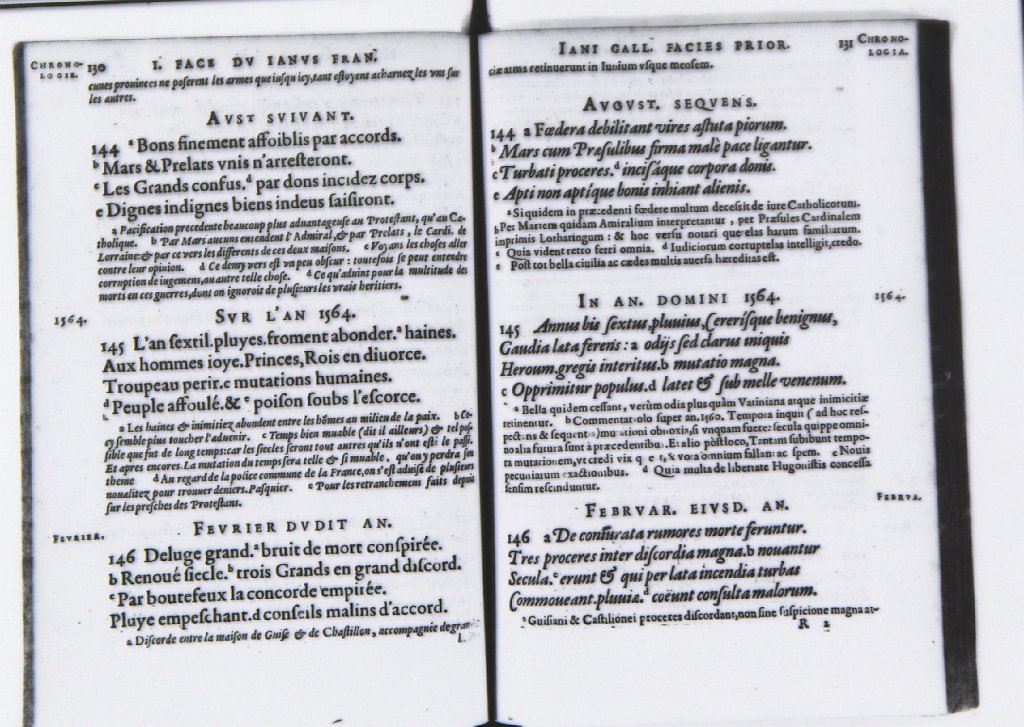 CHRONO-
LOGIE.
130 I. FACE DV IANVS FRAN.
cunes prouinces ne poserent les armes que iusqu icy, tant estoyent acharnez les vns sur
les autres.
AVST SVIVANT.
144 a Bons finement affoiblis par accords.
b Mars & Prelats vnis n'arresteront.
c Les Grands confus. d par dons incidez corps.
e Dignes indignes biens indeus saisiront.
a Pacification precedente beaucoup plus aduantageuse au Protestant, qu'au Ca-
tholique. b Par Mars aucuns entendent l'Admiral, & par Prelats, le Cardi. de
Lorraine: & par ce vers les differents de ces deux maisons. c Voyans les choses aller
contre leur opinion. d Ce demy vers est vn peu obscur: toutefois se peut entendre
corruption de iugemens, ou autre telle chose. d Ce qu'aduint pour la multitude des
morts en ces guerres, dont on ignoroit de plusieurs les vrais heritiers.
1564.
SVR L'AN 1564.
145 L'an sextil. pluyes. froment abonder. a haines.
Aux hommes ioye. Princes, Rois en diuorce.
Troupeau perir. c mutations humaines.
d Peuple affoulé. & e poison soubs l'escorce.
a Les haines & inimitiez abondent entre les hômes au milieu de la paix. b Ce-
cy semble plus toucher l'aduenir. c Temps bien muable (dit il ailleurs) & tel pos-
sible que fut de long temps: car les siecles seront tout autres qu'ils n'ont esté le passé.
Et apres encores. La mutation du temps sera telle & si muable, qu'on y perdra son
theme d Au regard de la police commune de la France, on s'est aduisé de plusieurs
noualitez pour trouuer deniers. Pasquier. e Pour les retranchemens faits depuis
sur les presches des Protestans.
FEVRIER.
FEVRIER DVDIT AN.
146 Deluge grand. a bruit de mort conspirée.
b Renoué siecle. b trois Grands en grand discord.
c Par boutefeux la concorde empirée.
Pluye empeschant. d conseils malins d'accord.
a Discorde entre la maison de Guise & de Chastillon, accompagnée de gran
IANI GALL. FACIES PRIOR.
131 CHRONO-
LOGIA.
ciæ arma retinuerunt in Iunium vsque mensem.
AVGVST. SEQVENS.
144 a Fœdera debilitant vires astuta piorum.
b Mars cum Præsulibus firma malè pace ligantur.
c Turbati proceres. d incisáque corpora donis.
e Apti non aptíque bonis inhiant alienis.
a Siquidem in præcedenti fœdere multum decessit de iure Catholicorum.
b Per Martem quidam Amiralium interpretantur, per Præsules Cardinalem
imprimis Lotharingum: & hoc versu notari querelas harum familiarum.
c Quia vident retro ferri omnia. d Iudiciorum corruptelas intelligit, credo.
e Post tot bella ciuilia ac cædes multis auersa hæreditas est.
1564.
IN AN. DOMINI 1564.
145 Annus bis sextus, pluuius, Cererísque benignus,
Gaudia lata ferens: a odijs sed clarus iniquis
Heroum. gregis interitus. b mutatio magna.
c Opprimitur populus. d latet & sub melle venenum.
a Bella quidem cessant, verùm odia plus quàm Vatiniana atque inimicitiæ
retinentur. b Commentariolo super an. 1560. Tempora inquit (ad hoc res-
pectans & sequentia) mutationi obnoxia, si vnquam fuere: secula quippe omni-
no alia futura sunt à præcedentibus. Et alio pòst loco, Tantam subibunt tempo-
ra mutationem, vt credi vix
pecuniarum exactionibus. d Quia multa de libertate Hugonistis concessa
sensim rescinduntur.
FEBRVA.
FEBRVAR. EIVSD. AN.
146 a De coniurata rumores morte feruntur.
Tres proceres inter discordia magna. b nouantur
Secula. c erunt & qui per lata incendia turbas
Commoueant. pluuia. d coëunt consulta malorum.
a Guisiani & Castilionei proceres discordant, non sine suspicione magna at-
R 2